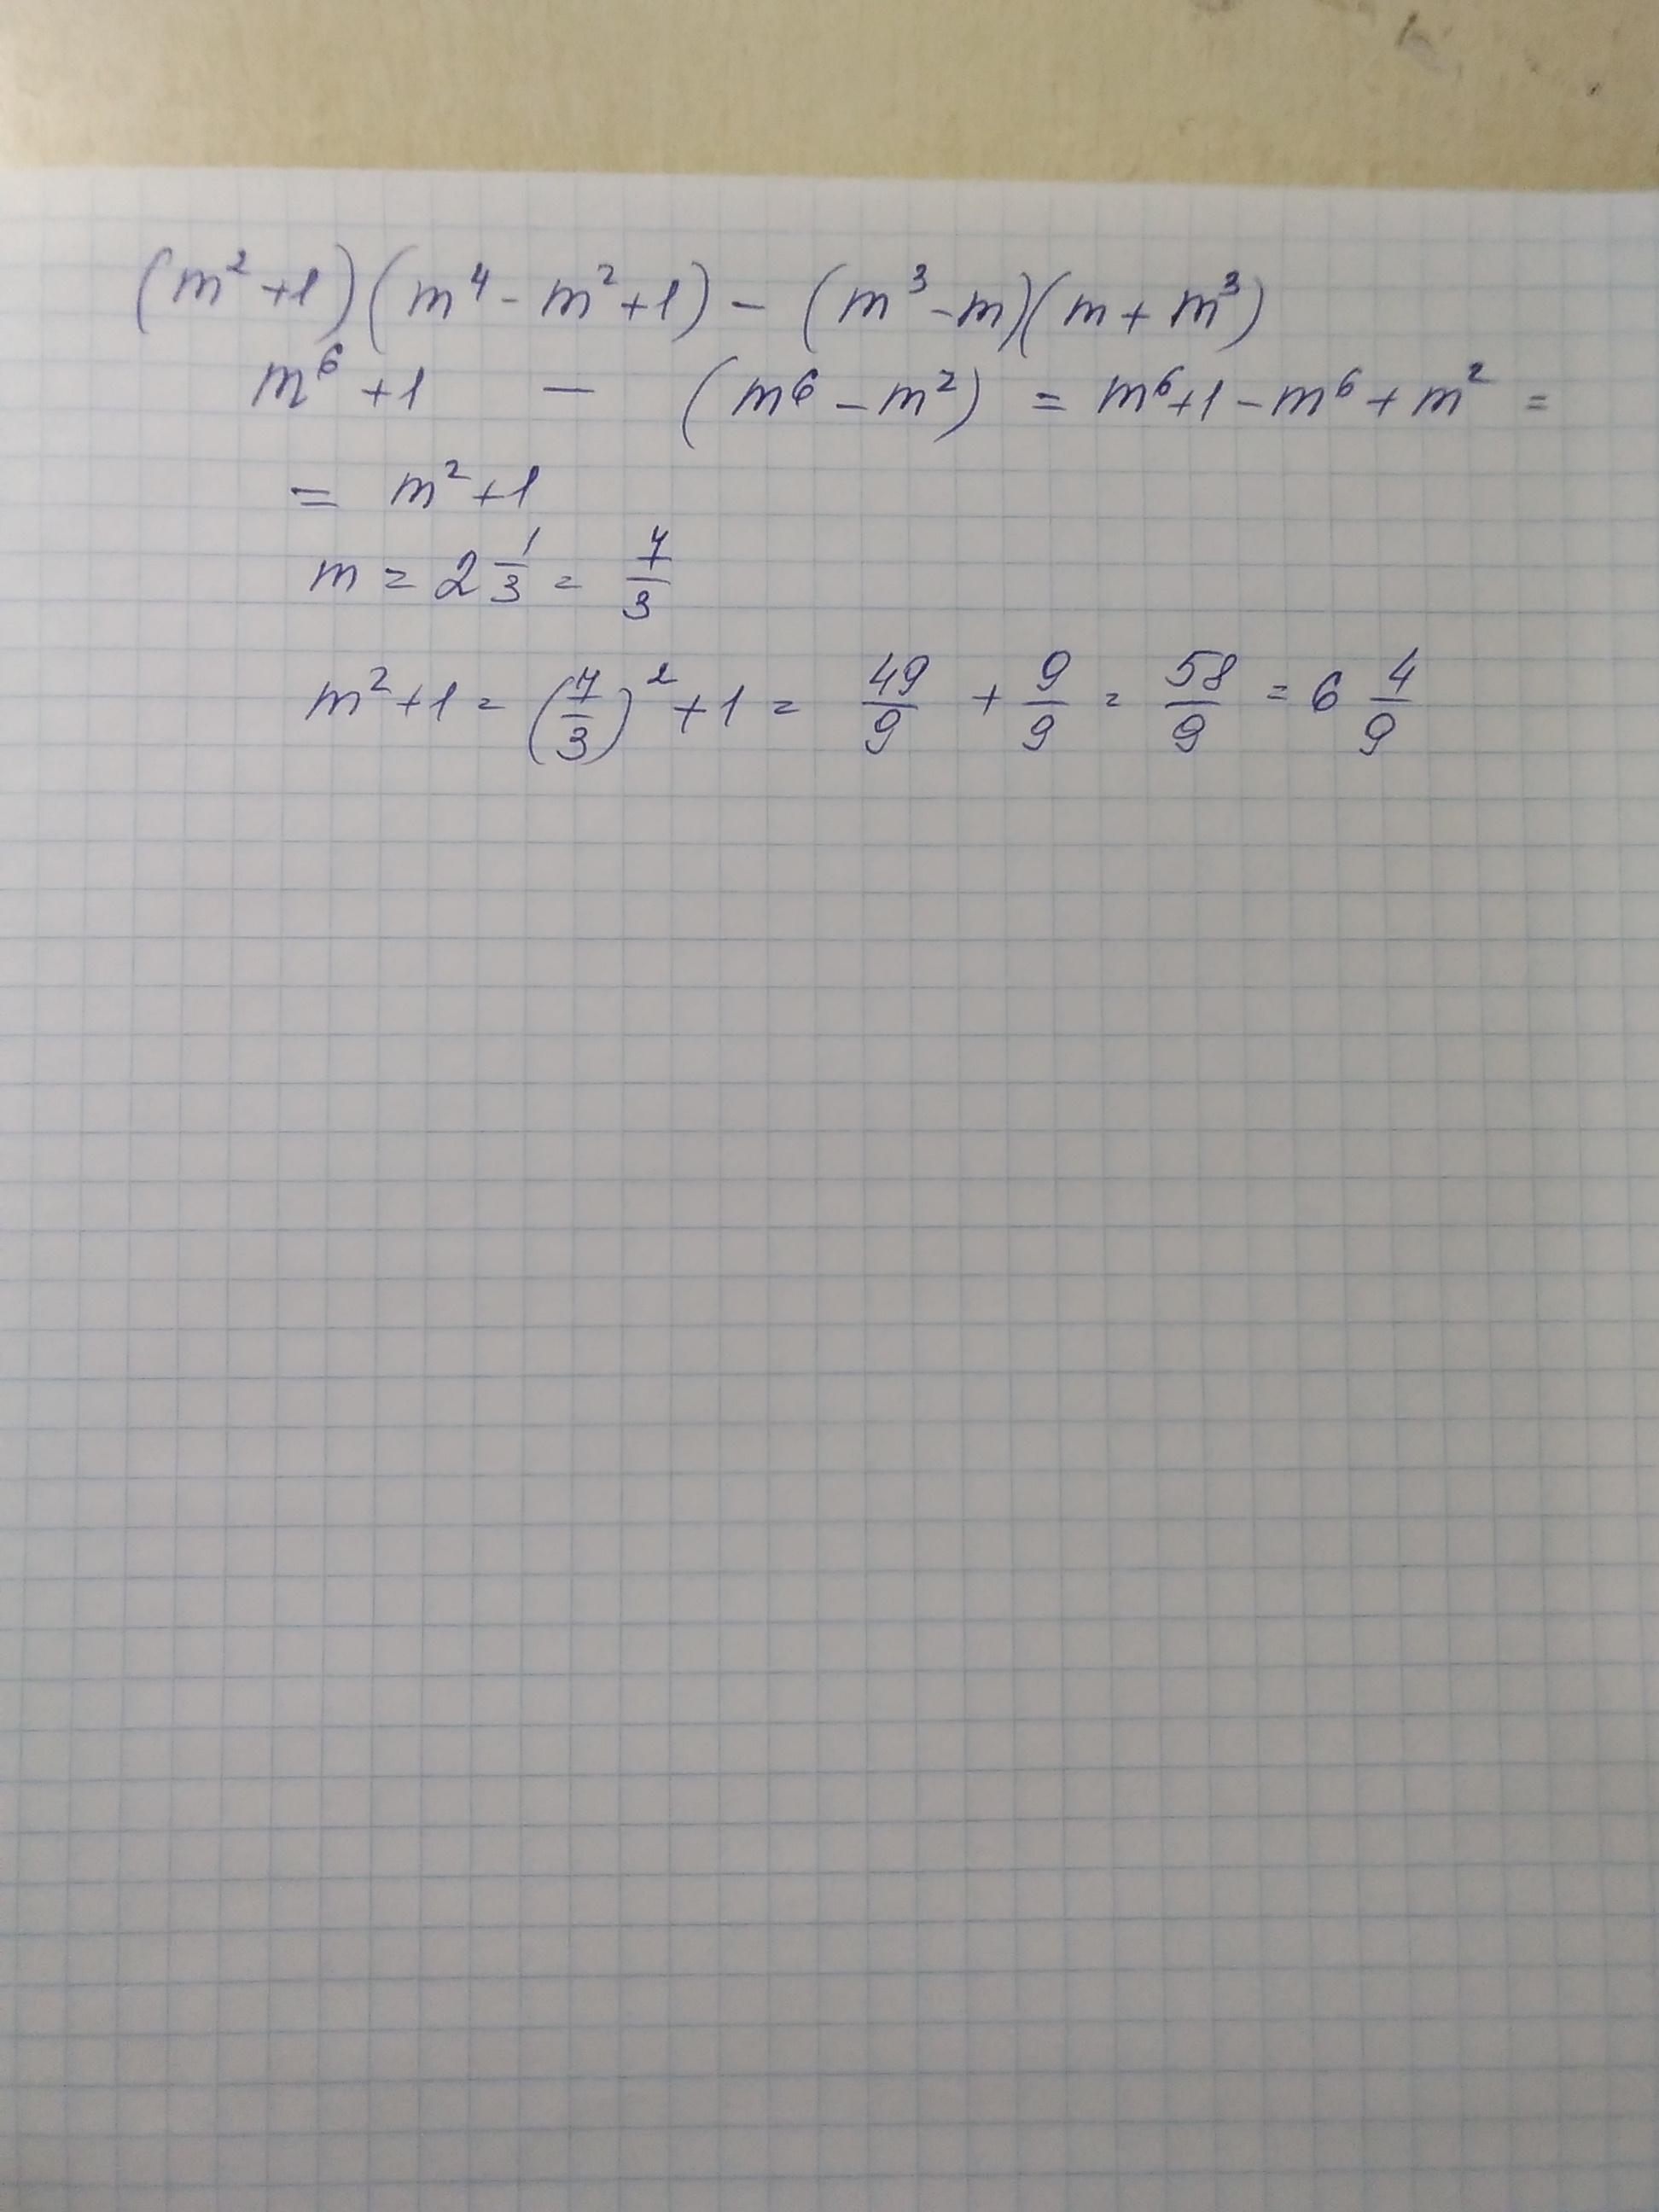 (m² + 1)(m⁴ - m² + 1) - (m³ - m)(m + m³)
m⁶ + 1 - (m⁶ - m²) = m⁶ + 1 - m⁶ + m² =
= m² + 1
m = 2 1/3 = 7/3
m² + 1 = (7/3)² + 1 = 49/9 + 9/9 = 58/9 = 6 4/9